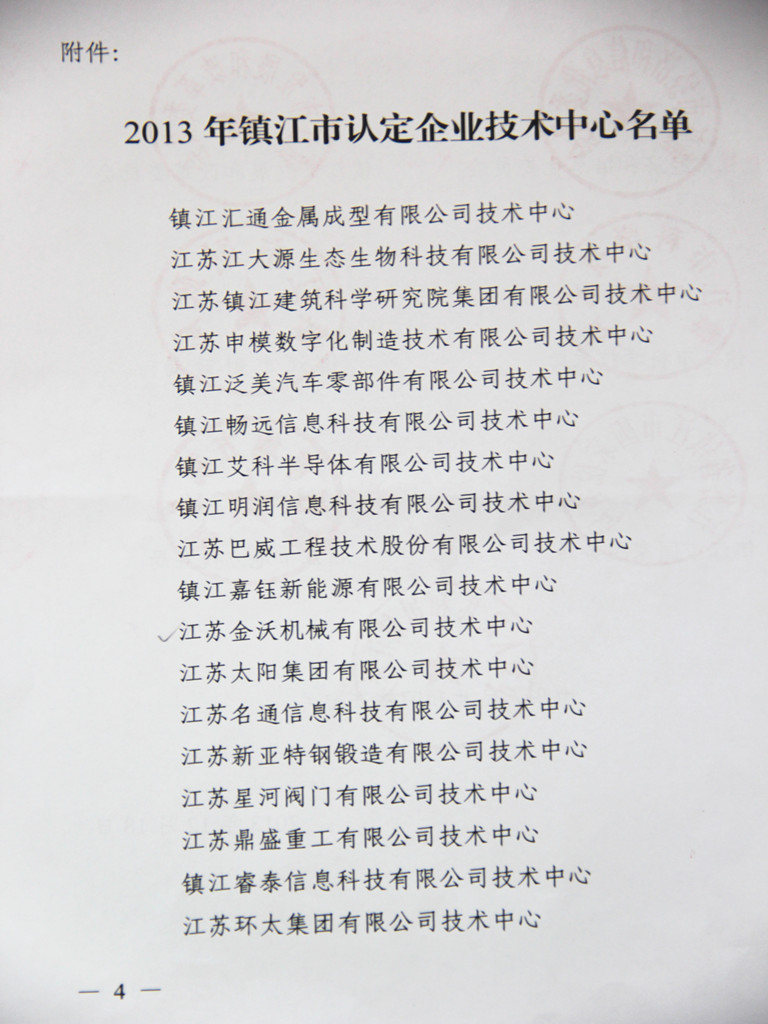 附件:
2013 年镇江市认定企业技术中心名单
镇江汇通金属成型有限公司技术中心
江苏江大源生态生物科技有限公司技术中心
江苏镇江建筑科学研究院集团有限公司技术中心
江苏申模数字化制造技术有限公司技术中心
镇江泛美汽车零部件有限公司技术中心
镇江畅远信息科技有限公司技术中心
镇江艾科半导体有限公司技术中心
镇江明润信息科技有限公司技术中心
江苏巴威工程技术股份有限公司技术中心
镇江嘉钰新能源有限公司技术中心
江苏金沃机械有限公司技术中心
江苏太阳集团有限公司技术中心
江苏名通信息科技有限公司技术中心
江苏新亚特钢锻造有限公司技术中心
江苏星河阀门有限公司技术中心
江苏鼎盛重工有限公司技术中心
镇江睿泰信息科技有限公司技术中心
江苏环太集团有限公司技术中心
— 4 —